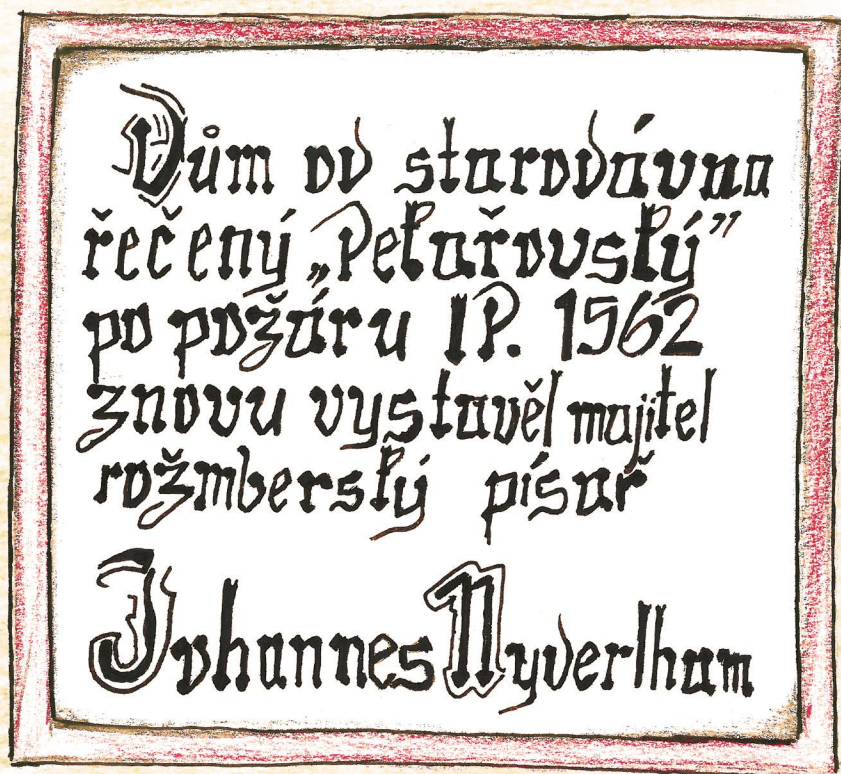 Dům od starodávna
řečený „Pekařovský”
po požáru lP. 1562
znovu vystavěl majitel
rožmberský písař
Johannes Nyderlham